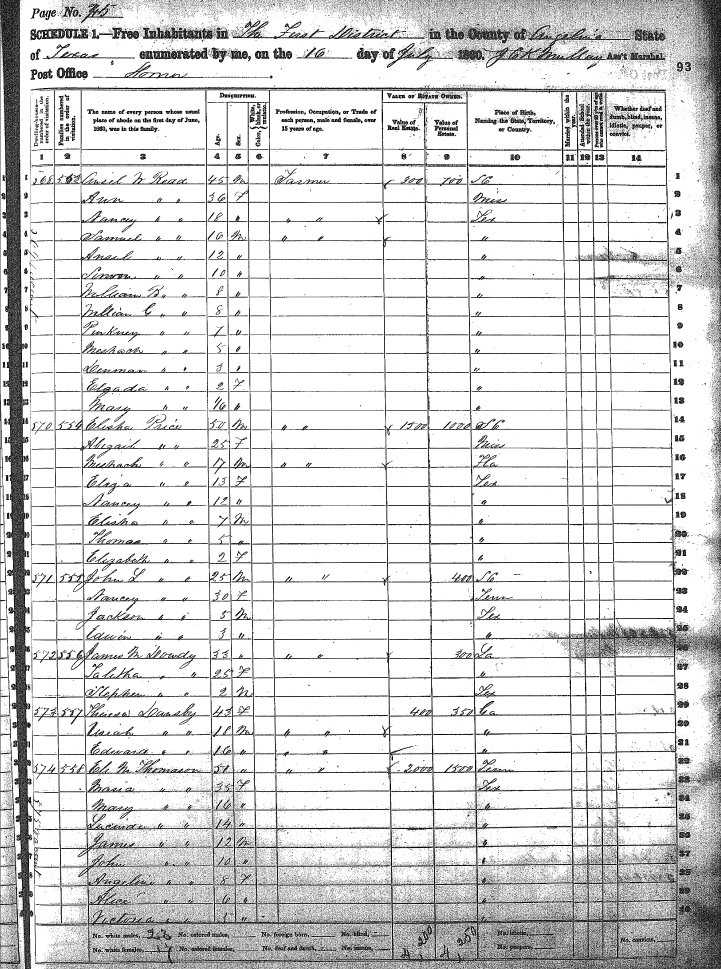 Page No. 75
SCHEDULE 1.—Free Inhabitants in The First District in the County of Angelina State
of Texas enumerated by me, on the 16 day of July 1860. Ass't Marshal.
Post Office Homer
93
DESCRIPTION. VALUE OF ESTATE OWNED.
The name of every person whose usual place of abode on the first day of June, 1860, was in this family. Age. Sex. Profession, Occupation, or Trade of each person, male and female, over 15 years of age. Value of Real Estate. Value of Personal Estate. Place of Birth, Naming the State, Territory, or Country. Married within the year. Attended School Whether deaf and dumb, blind, insane, idiotic, pauper, or convict.
1 2 3 4 5 6 7 8 9 10 11 12 13 14
1 568 Ansel W Read 45 M Farmer 300 700 SC 1
2 Ann " " 36 F Miss 2
3 Nancy " " 18 " " " Tex 3
4 Samuel " " 16 M " " " 4
5 Ansel " " 12 " " 5
6 " " 10 " " 6
7 William B " " 8 " " 7
8 William C " " 8 " " 8
9 Pinkney " " 7 " " 9
10 Meshack " " 5 " " 10
11 " " 3 " " 11
12 " " 2 F " 12
13 Mary " " " " 13
14 570 554 Elisha Price 50 M " " 1500 1000 SC 14
Abigail " " 25 F Miss 15
Meshack " " 17 M " " Fla 16
Eliza " " 13 F Tex 17
Nancey " " 12 " " 18
Elisha " " 7 M " 19
Thomas " " 5 " " 20
Elizabeth " " 2 F " 21
571 555 John L " " 25 M " " 400 SC
Nancey " " 30 F Tenn 23
Jackson " " 5 M Tex 24
Edwin " " 3 " "
572 556 James M Dowdy 33 " " " 300 La 26
Talitha " " 25 F " 27
Stephen " " 2 M Tex 28
573 557 Dansby 43 F 400 350 Ga
" " 18 M " " "
Edward " " 16 " " " "
574 558 Eli M Thomason 51 " " " 2000 1500 Tenn
Maria " " 35 F Tex
Mary " " 16 " "
Lucinda " " 14 " "
James " " 12 M "
John " " 10 " "
Angeline " " 8 F "
Alice " " 6 " "
Victoria " " 5 " "
No. white males, 23 No. colored males, No. foreign born, No. blind, 4,200 4,250 No. idiotic, No. convicts,
No. white females, 17 No. colored females, No. deaf and dumb, No. insane, No. paupers,